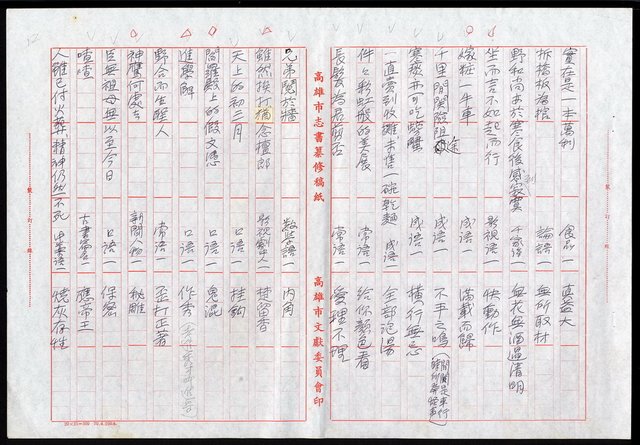 實在是一本萬利　食品一　直益大
拆橋板為棺　論語一　無所取材
野和尚出於寒食後感寂寞　千家詩一　無花無酒過清明
坐而言不如起而行　影視語一　快動作
嫁粧一牛車　成語一　滿載而歸
千里間關險阻途　成語一　不平之鳴
寒蔡而可吃螃蟹　成語一　橫行無忌
一直賣到收攤未售一碗乾麵　成語一　全部泡湯
件件彩虹般的美展　常語一　給你顏色看
長髮為君剪否　常語一　愛理不理
高雄市志書纂修稿紙　高雄市文獻委員會印
兄弟鬩於牆　數學語一　內角
雖然挨打猶念檀郎　影視劇中人一　楚留香
天上的初三月　口語一　掛鉤
閻羅殿上的假文憑　口語一　鬼混
進學解　口語一　作秀
野合而生聖人　常語一　歪打正著
神鷹何處去　新聞人物一　秘雕
臣無祖母無以至今日　口語一　保密
喳喳　古書篇名一　應帝王
人雖已付火葬精神仍然不死　中藥語一　燒灰存性
裝　訂　線
裝　訂　線